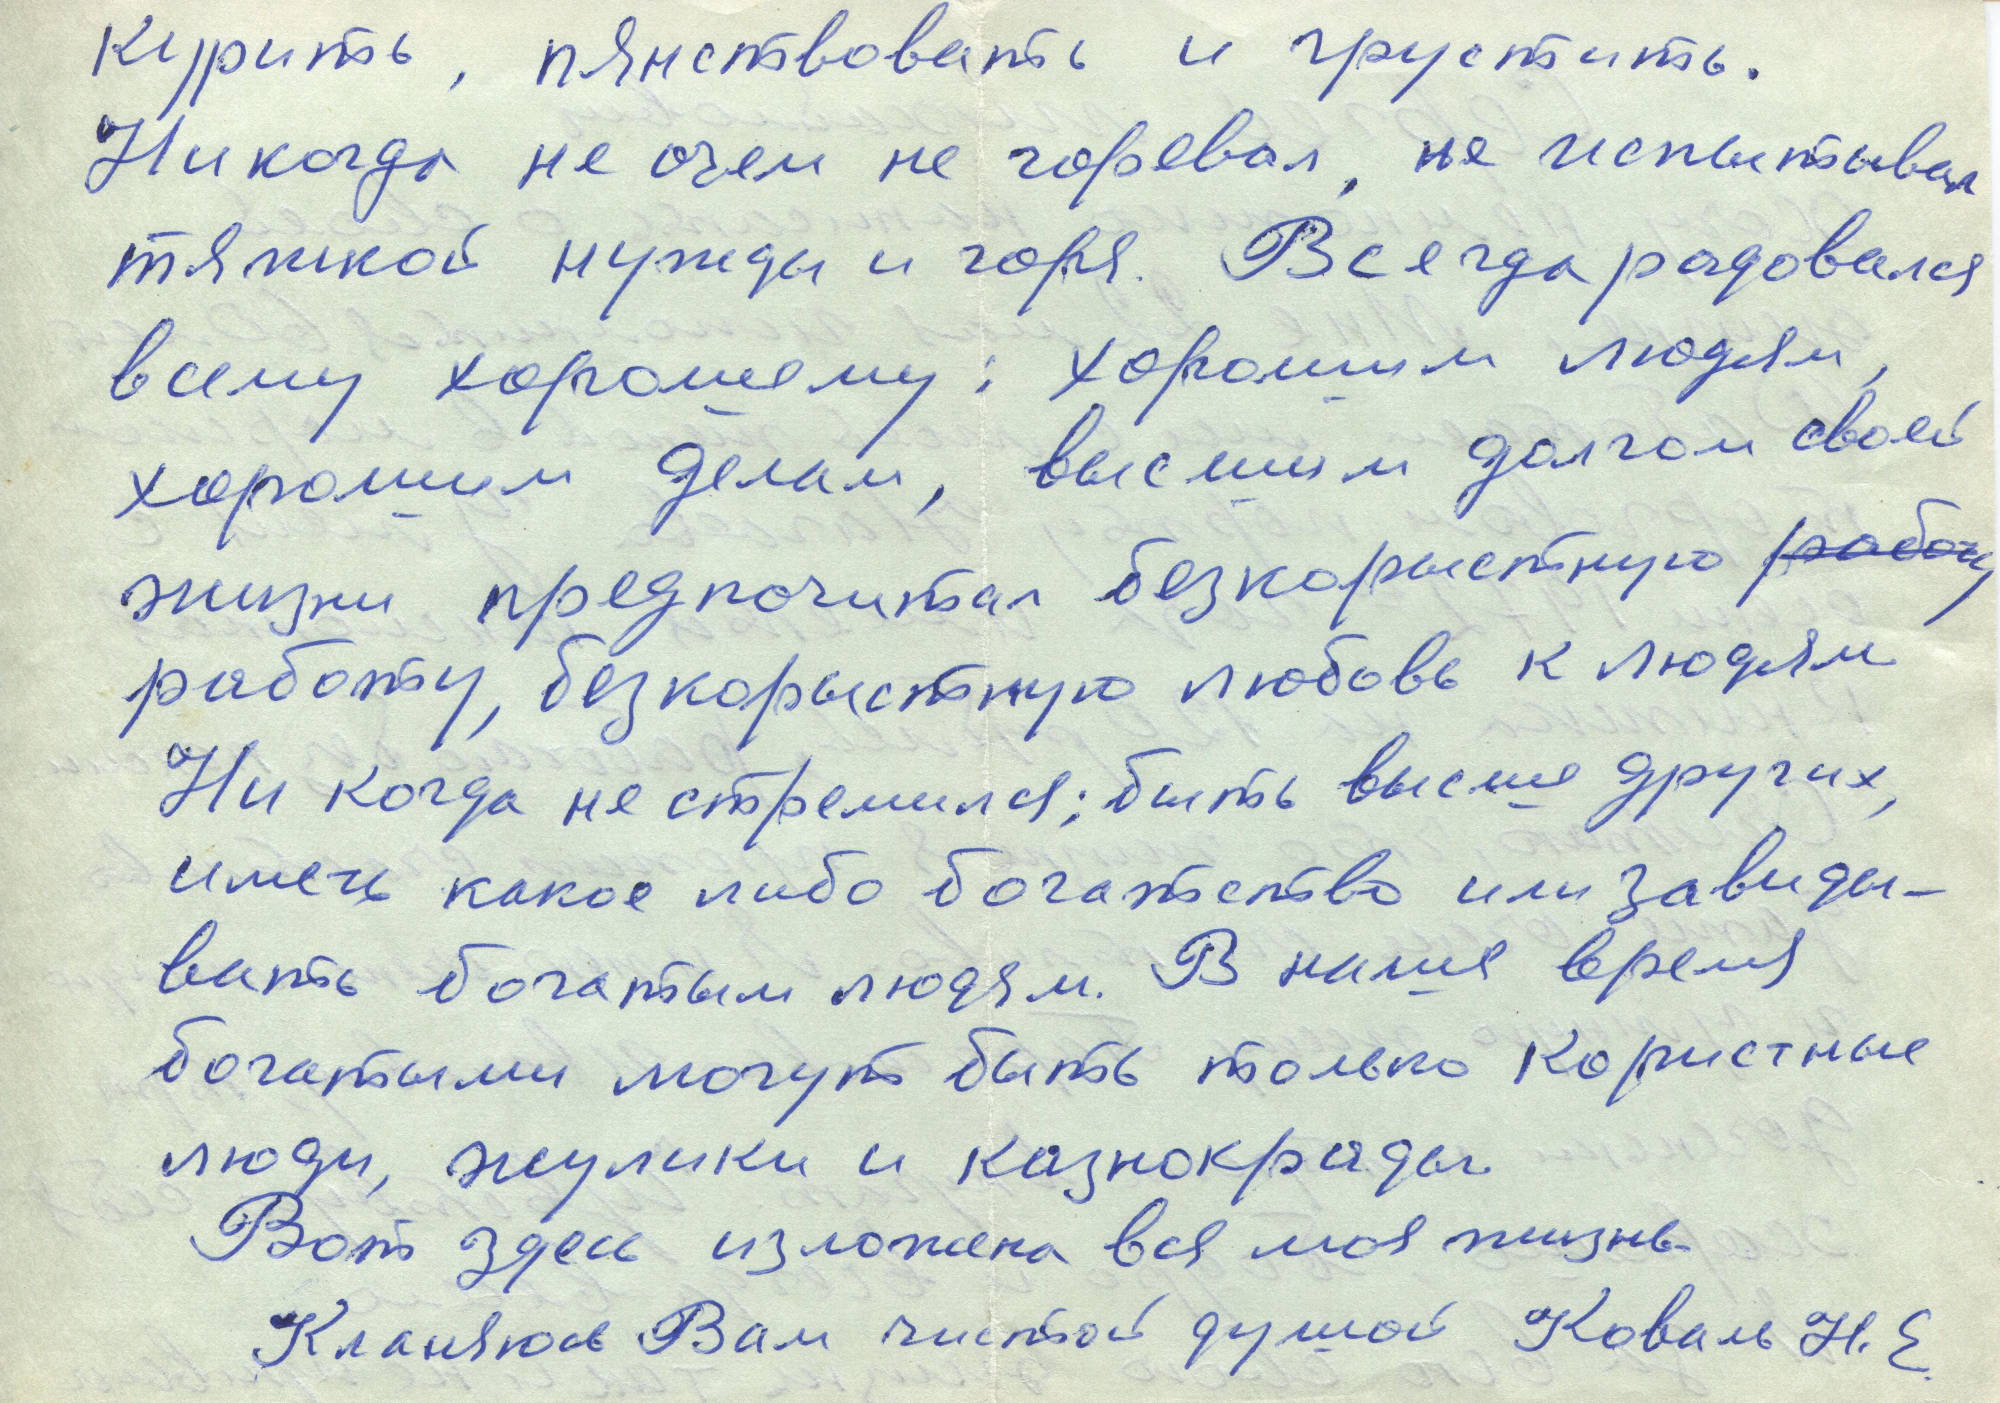 курить, пянствовать и грустить.
Никогда не очем не горевал, не испытывал
тяжкой нужды и горя. Всегда радовался
всему хорошему; хорошим людям,
хорошим делам, высшим долгом своей
жизни предпочитал безкорыстную работу
работу, безкорыстную любовь к людям
Ни когда не стремился; быть высше других,
иметь какое либо богатство или завиды-
вать богатым людям. В наше время
богатыми могут быть только користные
люди, жулики и казнокрады.
Вот здесь изложена вся моя жизнь.
Кланяюсь Вам чистой душой Коваль Н.Е.